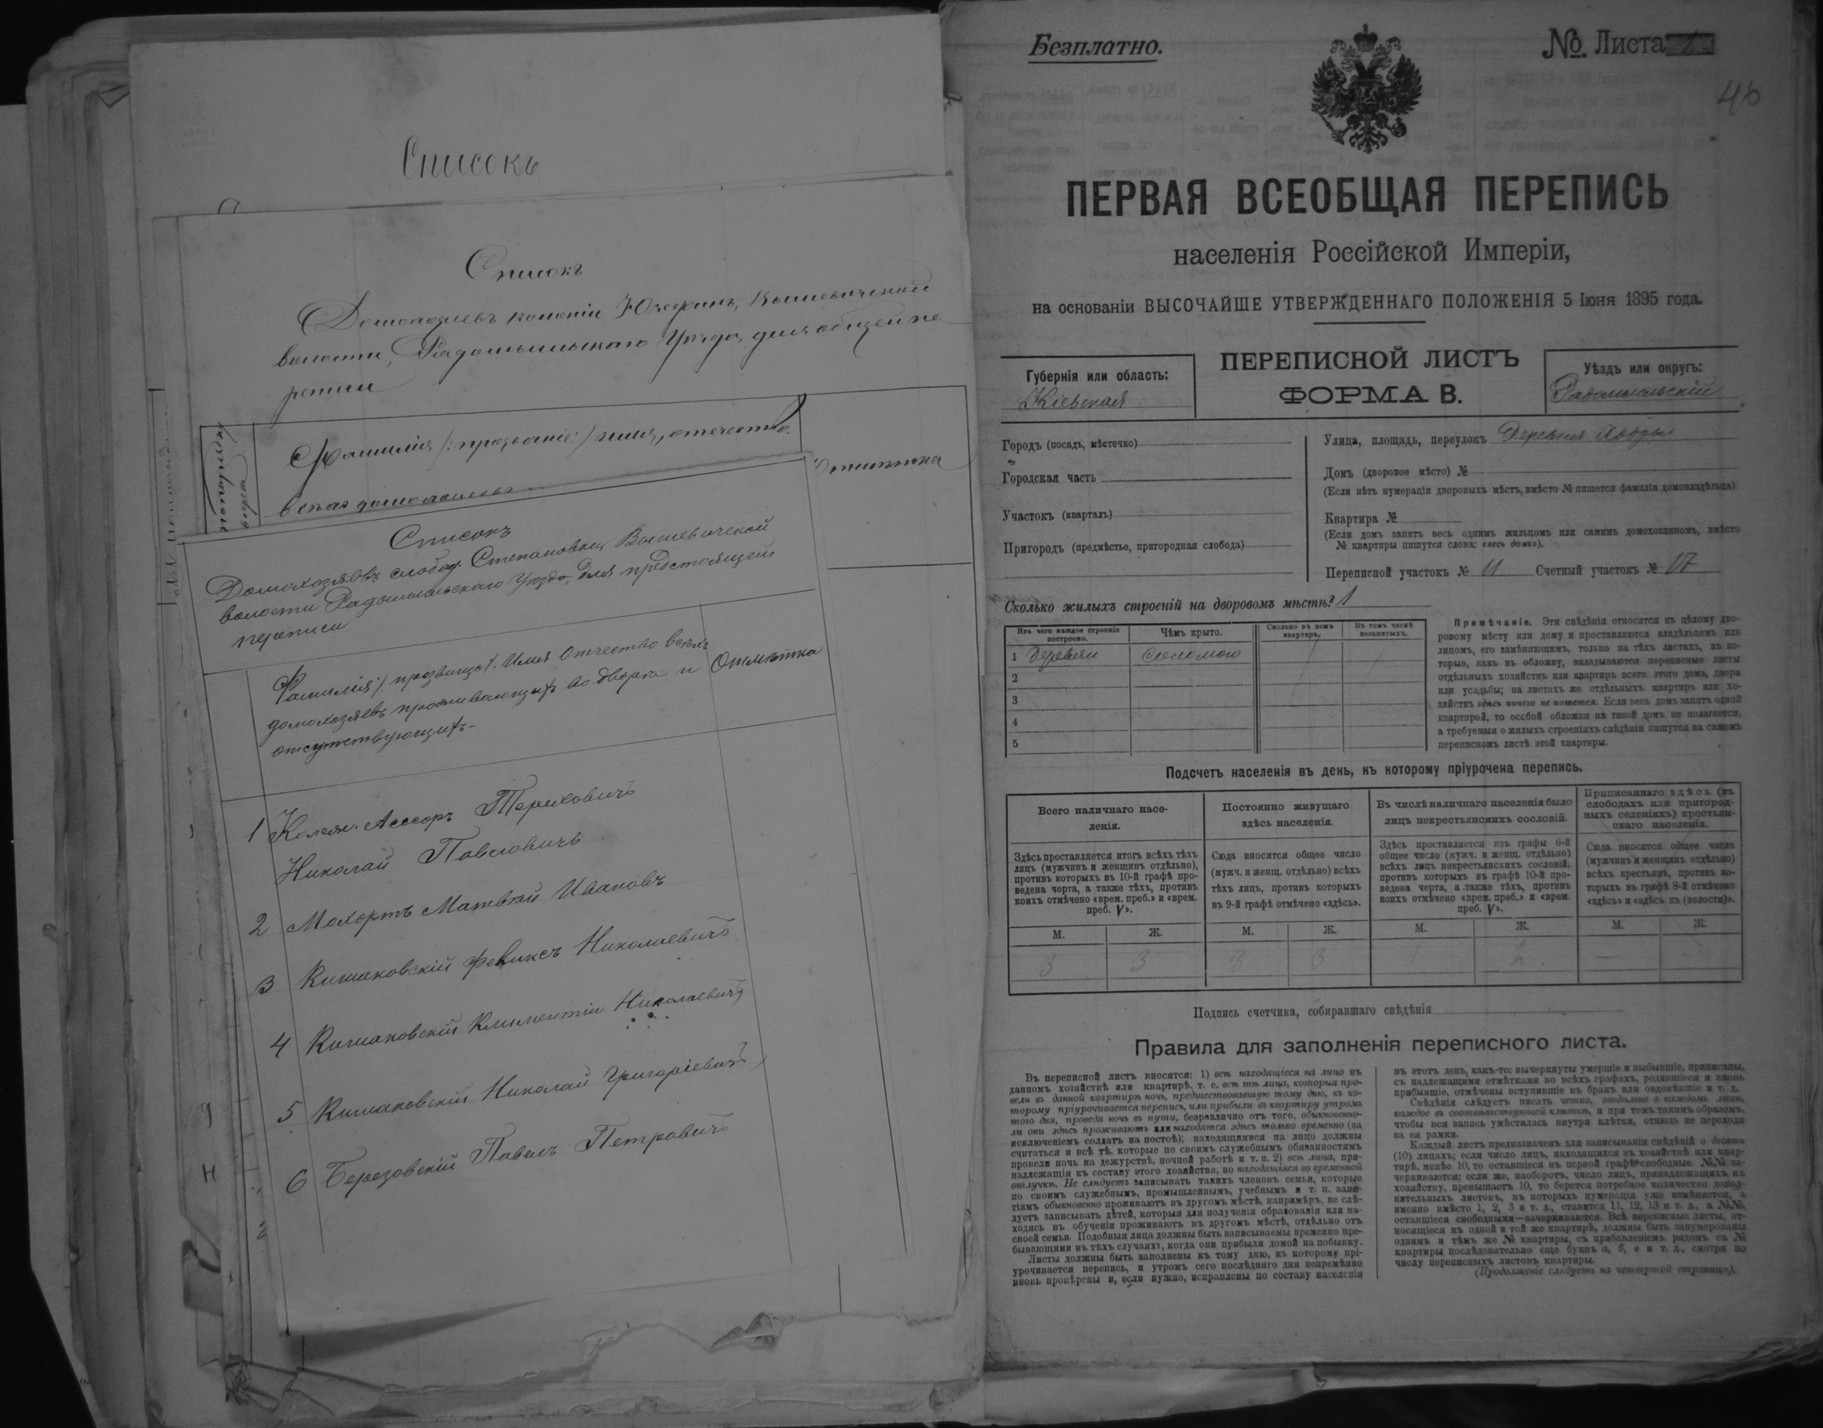 Списокъ
Списокъ
Домохозяевъ колоніи Юзефинъ, Вышевической
волости, Радомысльскаго Уѣзда, для общей пе
репиши
Фамилія /: прозваніе :/ имя, отечество
всѣхъ домохозяевъ
Отмѣтка
Списокъ
Домохозяевъ слобод. Степановки, Вышевичской
волости Радомысльскаго Уѣзда, для предстоящей
переписи
Фамилія /: прозвища /. Имя Отчество всѣхъ
домохозяевъ проживающихъ во дворѣ и
отсутствующихъ
Отмѣтка
1 Колеж. Асесоръ Териховичъ
Николай Павловичъ
2 Мохортъ Матвѣй Ивановъ
3 Кишаковскій Феликсъ Николаевичъ
4 Кишаковскій Климентій Николаевичъ
5 Кишаковскій Николай Григоріевичъ
6 Березовскій Павелъ Петровичъ
Безплатно.
№ Листа 1.
46
ПЕРВАЯ ВСЕОБЩАЯ ПЕРЕПИСЬ
населенія Россійской Имперіи,
на основаніи ВЫСОЧАЙШЕ УТВЕРЖДЕННАГО ПОЛОЖЕНІЯ 5 Іюня 1895 года.
ПЕРЕПИСНОЙ ЛИСТЪ
ФОРМА В.
Губернія или область:
Кіевская
Уѣздъ или округъ:
Радомысльскій
Городъ (посадъ, мѣстечко)
Городская часть
Участокъ (кварталъ)
Пригородъ (предмѣстье, пригородная слобода)
Улица, площадь, переулокъ Деревня
Домъ (дворовое мѣсто) №
(Если нѣтъ нумераціи дворовыхъ мѣстъ, вмѣсто № пишется фамилія домовладѣльца)
Квартира №
(Если домъ занятъ весь однимъ жильцомъ или самимъ домохозяиномъ, вмѣсто
№ квартиры пишутся слова: «весь домъ»).
Переписной участокъ № 11 Счетный участокъ № 17
Сколько жилыхъ строеній на дворовомъ мѣстѣ? 1
Изъ чего каждое строеніе
построено.
Чѣмъ крыто.
Сколько въ немъ
квартиръ.
Въ томъ числѣ
незанятыхъ.
1 деревян соломою
2
3
4
5
Примѣчаніе. Эти свѣдѣнія относятся къ цѣлому дво-
ровому мѣсту или дому и проставляются владѣльцемъ или
лицомъ, его замѣняющимъ, только на тѣхъ листахъ, въ ко-
торые, какъ въ обложку, вкладываются переписные листы
отдѣльныхъ хозяйствъ или квартиръ всего этого дома, двора
или усадьбы; на листахъ же отдѣльныхъ квартиръ или хо-
зяйствъ здѣсь ничего не пишется. Если весь домъ занятъ одной
квартирой, то особой обложки на такой домъ не полагается,
а требуемыя о жилыхъ строеніяхъ свѣдѣнія пишутся на самомъ
переписномъ листѣ этой квартиры.
Подсчетъ населенія въ день, къ которому пріурочена перепись.
Всего наличнаго насе-
ленія.
Здѣсь проставляется итогъ всѣхъ тѣхъ
лицъ (мужчинъ и женщинъ отдѣльно),
противъ которыхъ въ 10-й графѣ про-
ведена черта, а также тѣхъ, противъ
коихъ отмѣчено «врем. преб.» и «врем.
преб. V».
Постоянно живущаго
здѣсь населенія.
Сюда вносится общее число
(мужч. и женщ. отдѣльно) всѣхъ
тѣхъ лицъ, противъ которыхъ
въ 9-й графѣ отмѣчено «здѣсь».
Въ числѣ наличнаго населенія было
лицъ некрестьянскихъ сословій.
Здѣсь проставляется изъ графы 6-й
общее число (мужч. и женщ. отдѣльно)
всѣхъ лицъ некрестьянскихъ сословій,
противъ которыхъ въ графѣ 10-й про-
ведена черта, а также тѣхъ, противъ
коихъ отмѣчено «врем. преб.» и «врем.
преб. V».
Приписаннаго здѣсь (въ
слободахъ или пригород-
ныхъ селеніяхъ) крестьян-
скаго населенія.
Сюда вносится общее число
(мужчинъ и женщинъ отдѣльно)
всѣхъ крестьянъ, противъ ко-
торыхъ въ графѣ 8-й отмѣчено
«здѣсь» и «здѣсь къ (волости)».
М. Ж. М. Ж. М. Ж. М. Ж.
3 3 3 3 2 — —
Подпись счетчика, собиравшаго свѣдѣнія
Правила для заполненія переписного листа.
Въ переписной листъ вносятся: 1) всѣ находящіеся на лицо въ
данномъ хозяйствѣ или квартирѣ, т. е. всѣ тѣ лица, которыя про-
вели въ данной квартирѣ ночь, предшествовавшую тому дню, къ ко-
торому пріурочивается перепись, или прибыли въ квартиру утромъ
того дня, проведя ночь въ пути, безразлично отъ того, обыкновенно-
ли они здѣсь проживаютъ или находятся здѣсь только временно (за
исключеніемъ солдатъ на постоѣ); находящимися на лицо должны
считаться и всѣ тѣ, которые по своимъ служебнымъ обязанностямъ
провели ночь на дежурствѣ, ночной работѣ и т. п. 2) всѣ лица, при-
надлежащія къ составу этого хозяйства, но находящіяся во временной
отлучкѣ. Не слѣдуетъ записывать такихъ членовъ семьи, которые
по своимъ служебнымъ, промышленнымъ, учебнымъ и т. п. заня-
тіямъ обыкновенно проживаютъ въ другомъ мѣстѣ, напримѣръ, не слѣ-
дуетъ записывать дѣтей, которыя для полученія образованія или на-
ходясь въ обученіи проживаютъ въ другомъ мѣстѣ, отдѣльно отъ
своей семьи. Подобныя лица должны быть записываемы временно пре-
бывающими въ тѣхъ случаяхъ, когда они прибыли домой на побывку.
Листы должны быть наполнены къ тому дню, къ которому прі-
урочивается перепись, и утромъ сего послѣдняго дня непремѣнно
вновь провѣрены и, если нужно, исправлены по составу населенія
въ этотъ день, какъ-то: вычеркнуты умершіе и выбывшіе, приписаны,
съ надлежащими отмѣтками во всѣхъ графахъ, родившіеся и вновь
прибывшіе, отмѣчены вступившіе въ бракъ или овдовѣвшіе и т. д.
Свѣдѣнія слѣдуетъ писать четко, отдѣльно о каждомъ лицѣ,
каждое въ соотвѣтствующей клѣткѣ, и при томъ такимъ образомъ,
чтобы вся запись умѣстилась внутри клѣтки, отнюдь не переходя
за ея рамки.
Каждый листъ предназначенъ для записыванія свѣдѣній о десяти
(10) лицахъ; если число лицъ, находящихся въ хозяйствѣ или квар-
тирѣ, менѣе 10, то оставшіеся въ первой графѣ свободные №№ за-
черкиваются; если же, наоборотъ, число лицъ, принадлежащихъ къ
хозяйству, превышаетъ 10, то берется потребное количество допол-
нительныхъ листовъ, въ которыхъ нумерація уже измѣняется, а
именно вмѣсто 1, 2, 3 и т. д., ставится 11, 12, 13 и т. д., а №№,
оставшіеся свободными—зачеркиваются. Всѣ переписные листы, от-
носящіеся къ одной и той же квартирѣ, должны быть занумерованы
однимъ и тѣмъ же № квартиры, съ прибавленіемъ рядомъ съ №
квартиры послѣдовательно еще буквъ а, б, в и т. д., смотря по
числу переписныхъ листовъ квартиры.
(Продолженіе слѣдуетъ на четвертой страницѣ).